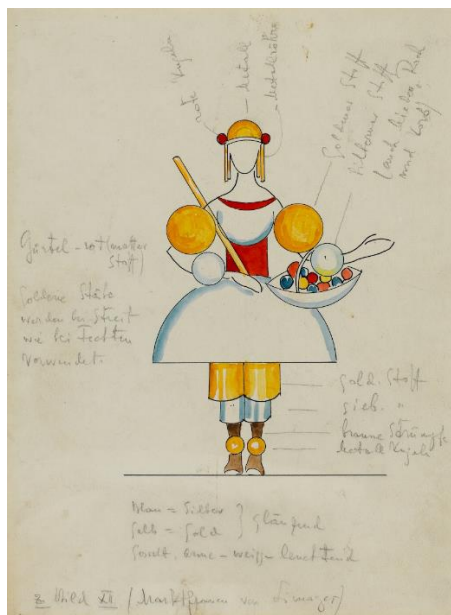 rote Kugeln
Metall
Metallröhre
Goldener Stoff
Silberner Stoff
(auch
und Korb)
Gürtel - rot (matter
Stoff)
Goldene Stäbe
werden bei Streit
wie bei Fechten
verwendet.
Gold. Stoff
silb. "
braune Strümpfe
Metall Kugeln
Blau = Silber
Gelb = Gold } glänzend
Gesicht. Arme - weiss - leuchtend
z Bild XII (Marktfrauen von Limoges)